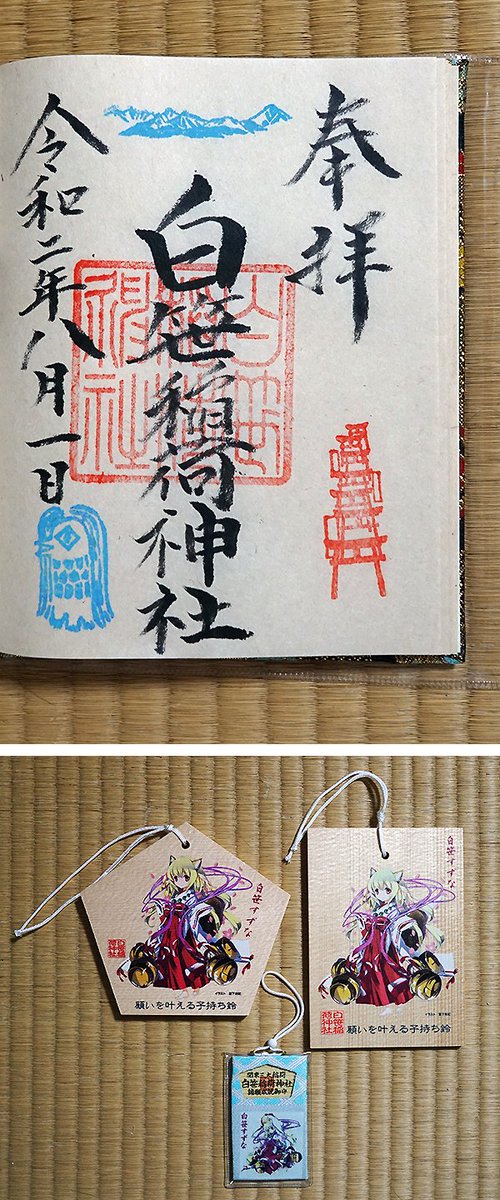 奉拝
白笹稲荷神社
令和二年八月一日
白笹すずな
白笹稲荷神社
願いを叶える子持ち鈴
白笹すずな
白笹稲荷神社
願いを叶える子持ち鈴
関東三大稲荷
白笹稲荷神社
白笹すずな